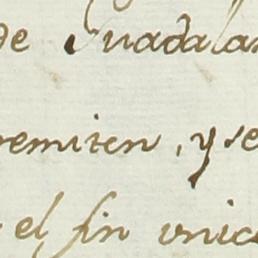 de Guadala
remiten, y se
el fin unic